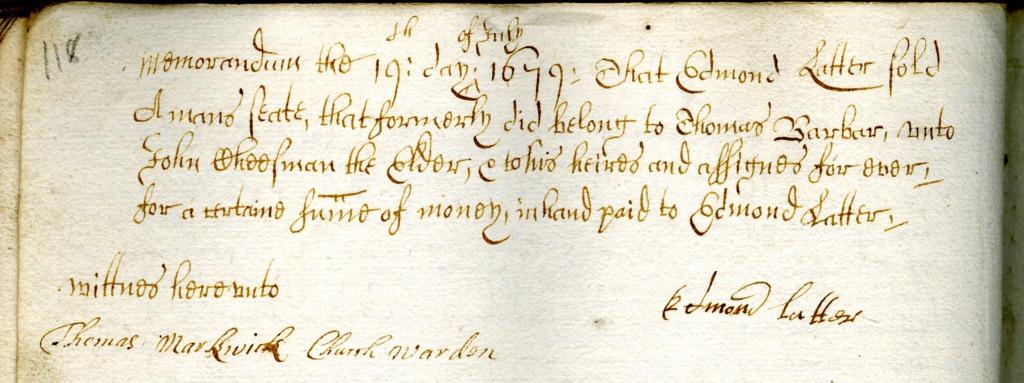 118
th of July
Memorandum the 19: day: 1679: That Edmond Latter sold
A mans seate, that formerly did belong to Thomas Barbar, vnto
John Cheesman the Elder, & to his heires and assignes for ever,
for a certaine sum̅e of money, in hand paid to Edmond Latter,
wittnes herevnto
Edmond latter
Thomas Markwick Church warden